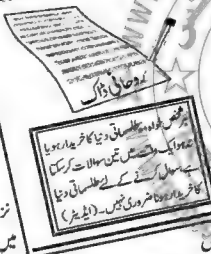 روحانی ڈاک
ہر شخص خواہ وہ طلسماتی دنیا کا خریدار ہو یا
نہ ہو ایک وقت میں تین سوالات کر سکتا
ہے، سوال کرنے کے لئے طلسماتی دنیا
کا خریدار ہونا ضروری نہیں۔ (ایڈیٹر)
میں